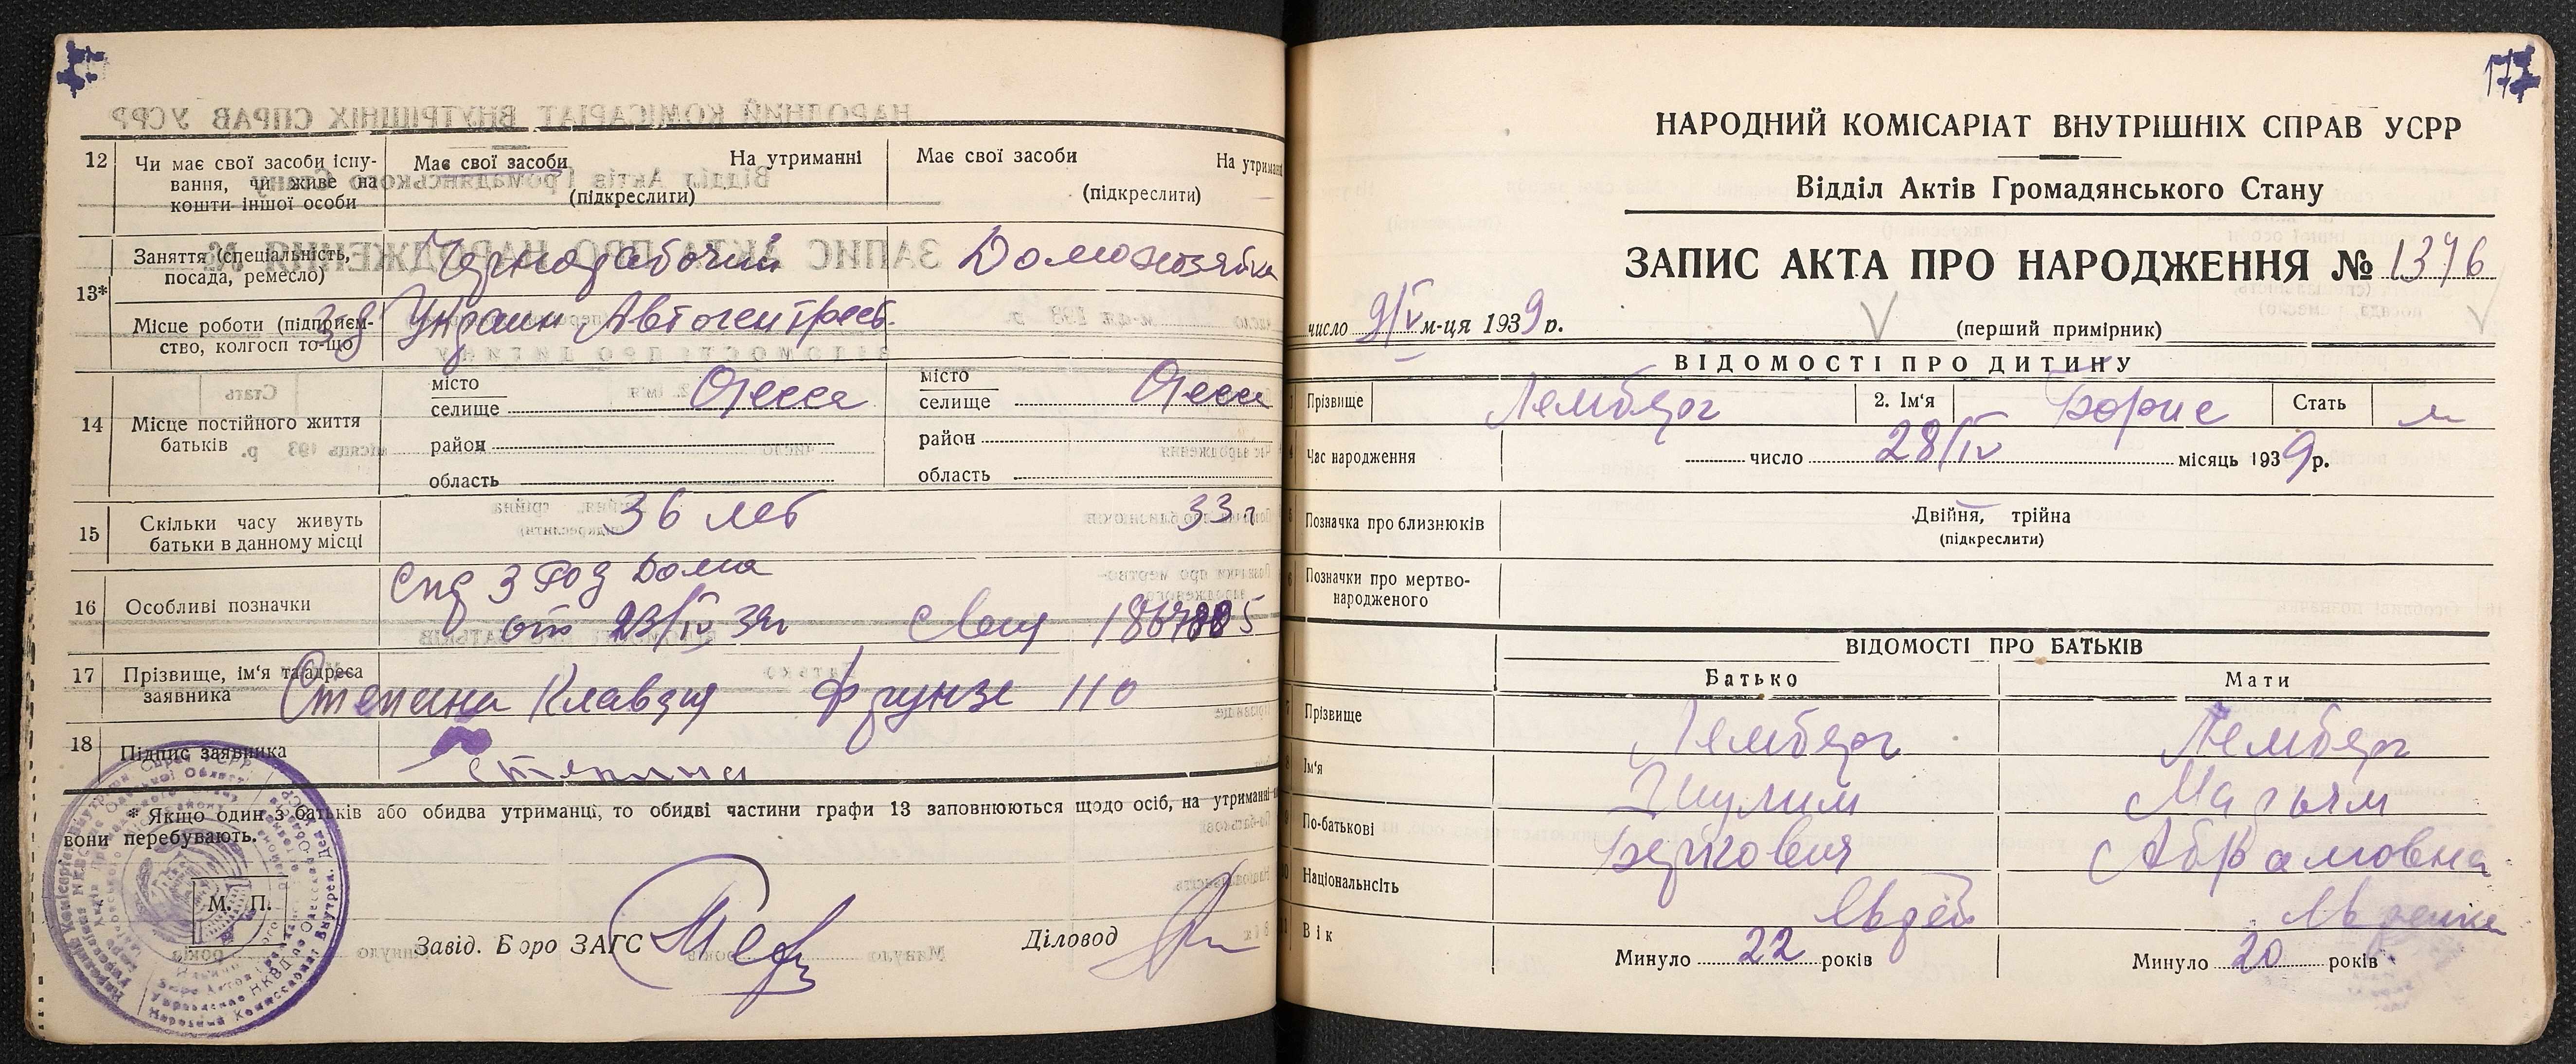 12 Чи має свої засоби існу- Має свої засоби На утриманні Має свої засоби На утриманні
вання, чи живе на
кошти іншої особи (підкреслити) (підкреслити)
13* Заняття (спеціальність, Чернорабочий Домохозяйка
посада, ремесло)
Місце роботи (підприєм- З-д Украин Автоген Трест.
ство, колгосп то-що)
14 Місце постійного життя місто Одесса місто Одесса
батьків селище селище
район район
область область
15 Скільки часу живуть 36 лет 33 г
батьки в данному місці
16 Особливі позначки Спр 3 Род Дома
от 23/IV 39г
17 Прізвище, ім'я та адреса
заявника Степина Клавдия Фрунзе 110
18 Підпис заявника Степина
* Якщо один з батьків або обидва утриманці, то обидві частини графи 13 заповнюються щодо осіб, на утриманні
вони перебувають.
М. П.
Завід. Бюро ЗАГС Діловод
177
НАРОДНИЙ КОМІСАРІАТ ВНУТРІШНІХ СПРАВ УСРР
Відділ Актів Громадянського Стану
ЗАПИС АКТА ПРО НАРОДЖЕННЯ № 1376
число 9/V м-ця 1939 р. (перший примірник)
ВІДОМОСТІ ПРО ДИТИНУ
Прізвище Лемберг 2. Ім'я Борис Стать м
Час народження число 28/IV місяць 1939 р.
Позначка про близнюків Двійня, трійна
(підкреслити)
Позначки про мертво-
народженого
ВІДОМОСТІ ПРО БАТЬКІВ
Батько Мати
Прізвище Лемберг Лемберг
Ім'я Шулим Марьям
По-батькові Беркович Абрамовна
Національність Еврей Еврейка
Вік Минуло 22 років Минуло 20 років